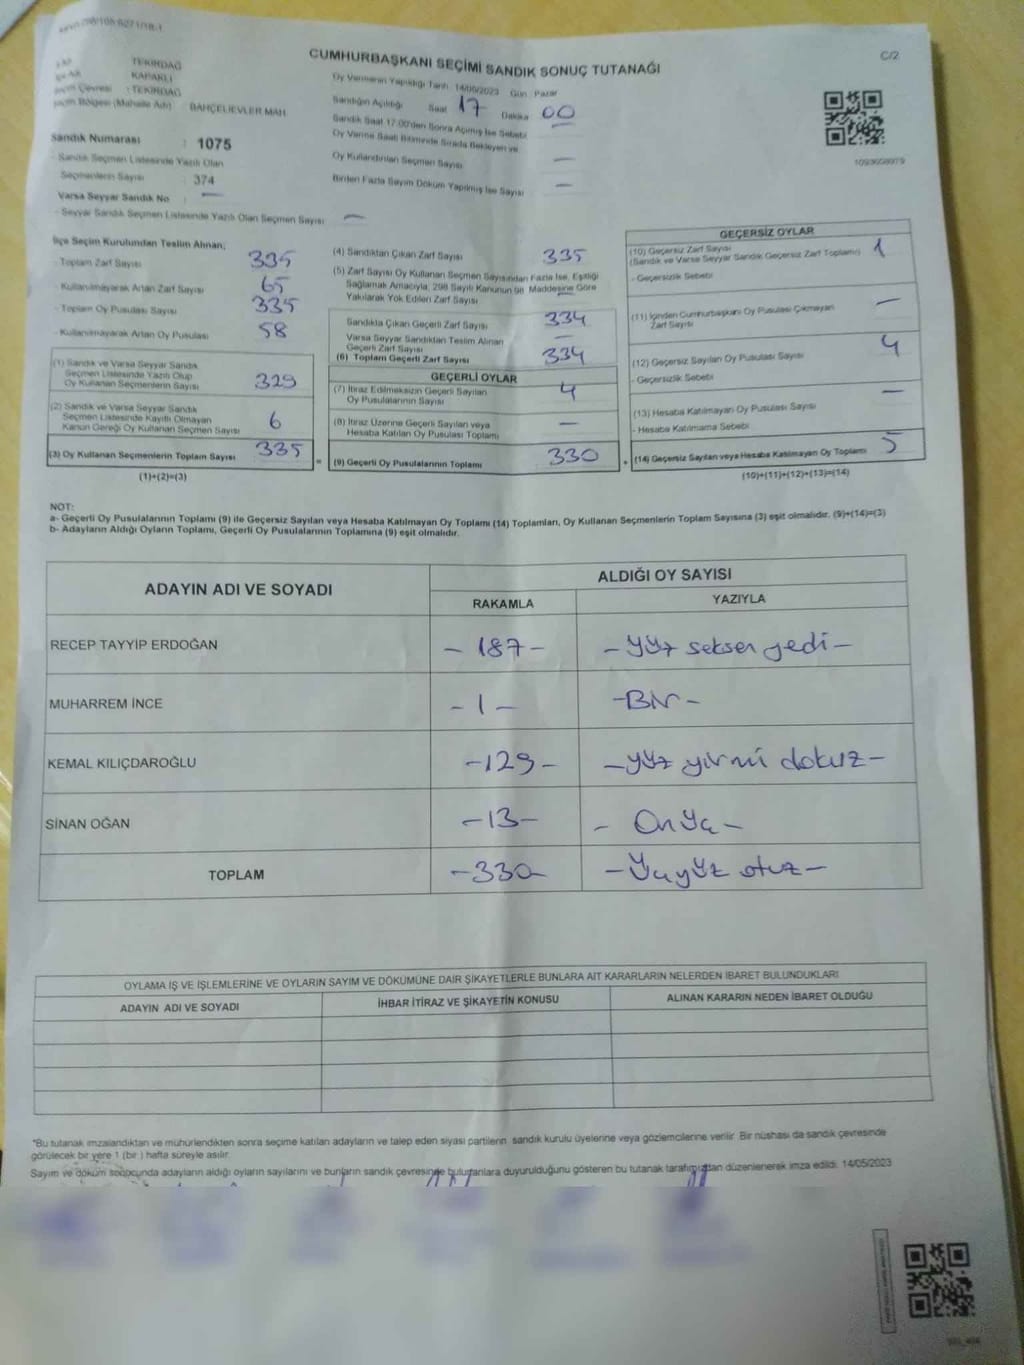 C/2
CUMHURBAŞKANI SEÇİMİ SANDIK SONUÇ TUTANAĞI
TEKİRDAĞ
KAPAKLI
: TEKİRDAĞ
Seçim Bölgesi (Mahalle Adı) : BAHÇELİEVLER MAH
Sandık Numarası : 1075
- Sandık Seçmen Listesinde Yazılı Olan
Seçmenlerin Sayısı : 374
Varsa Seyyar Sandık No : —
- Seyyar Sandık Seçmen Listesinde Yazılı Olan Seçmen Sayısı —
Oy Vermenin Yapıldığı Tarih 14/05/2023 Gün : Pazar
Sandığın Açıldığı Saat 17 Dakika 00
Sandık Saat 17.00'den Sonra Açılmış İse Sebebi —
Oy Verme Saati Bitiminde Sırada Bekleyen ve
Oy Kullandırılan Seçmen Sayısı —
Birden Fazla Sayım Döküm Yapılmış İse Sayısı —
1093608979
İlçe Seçim Kurulundan Teslim Alınan;
- Toplam Zarf Sayısı 335
- Kullanılmayarak Artan Zarf Sayısı 65
- Toplam Oy Pusulası Sayısı 335
- Kullanılmayarak Artan Oy Pusulası 58
(1) Sandık ve Varsa Seyyar Sandık
Seçmen Listesinde Yazılı Olup
Oy Kullanan Seçmenlerin Sayısı 329
(2) Sandık ve Varsa Seyyar Sandık
Seçmen Listesinde Kayıtlı Olmayan
Kanun Gereği Oy Kullanan Seçmen Sayısı 6
(3) Oy Kullanan Seçmenlerin Toplam Sayısı 335 =
(1)+(2)=(3)
(4) Sandıktan Çıkan Zarf Sayısı 335
(5) Zarf Sayısı Oy Kullanan Seçmen Sayısından Fazla İse, Eşitliği
Sağlamak Amacıyla, 298 Sayılı Kanunun 98. Maddesine Göre
Yakılarak Yok Edilen Zarf Sayısı —
Sandıkta Çıkan Geçerli Zarf Sayısı 334
Varsa Seyyar Sandıktan Teslim Alınan
Geçerli Zarf Sayısı —
(6) Toplam Geçerli Zarf Sayısı 334
GEÇERLİ OYLAR
(7) İtiraz Edilmeksizin Geçerli Sayılan
Oy Pusulalarının Sayısı 4
(8) İtiraz Üzerine Geçerli Sayılan veya
Hesaba Katılan Oy Pusulası Toplamı —
(9) Geçerli Oy Pusulalarının Toplamı 330 +
GEÇERSİZ OYLAR
(10) Geçersiz Zarf Sayısı
(Sandık ve Varsa Seyyar Sandık Geçersiz Zarf Toplamı) 1
- Geçersizlik Sebebi
(11) İçinden Cumhurbaşkanı Oy Pusulası Çıkmayan
Zarf Sayısı —
(12) Geçersiz Sayılan Oy Pusulası Sayısı 4
- Geçersizlik Sebebi
(13) Hesaba Katılmayan Oy Pusulası Sayısı —
- Hesaba Katılmama Sebebi
(14) Geçersiz Sayılan veya Hesaba Katılmayan Oy Toplamı 5
(10)+(11)+(12)+(13)=(14)
NOT:
a- Geçerli Oy Pusulalarının Toplamı (9) ile Geçersiz Sayılan veya Hesaba Katılmayan Oy Toplamı (14) Toplamları, Oy Kullanan Seçmenlerin Toplam Sayısına (3) eşit olmalıdır. (9)+(14)=(3)
b- Adayların Aldığı Oyların Toplamı, Geçerli Oy Pusulalarının Toplamına (9) eşit olmalıdır.
ADAYIN ADI VE SOYADI ALDIĞI OY SAYISI
RAKAMLA YAZIYLA
RECEP TAYYİP ERDOĞAN – 187 – – yüz seksen yedi –
MUHARREM İNCE – 1 – – Bir –
KEMAL KILIÇDAROĞLU – 129 – – yüz yirmi dokuz –
SİNAN OĞAN – 13 – – Onüç –
TOPLAM – 330 – – Üçyüz otuz –
OYLAMA İŞ VE İŞLEMLERİNE VE OYLARIN SAYIM VE DÖKÜMÜNE DAİR ŞİKAYETLERLE BUNLARA AİT KARARLARIN NELERDEN İBARET BULUNDUKLARI
ADAYIN ADI VE SOYADI İHBAR İTİRAZ VE ŞİKAYETİN KONUSU ALINAN KARARIN NEDEN İBARET OLDUĞU
*Bu tutanak imzalandıktan ve mühürlendikten sonra seçime katılan adayların ve talep eden siyasi partilerin sandık kurulu üyelerine veya gözlemcilerine verilir. Bir nüshası da sandık çevresinde
görülecek bir yere 1 (bir ) hafta süreyle asılır.
Sayım ve döküm sonucunda adayların aldığı oyların sayılarını ve bunların sandık çevresinde bulunanlara duyurulduğunu gösteren bu tutanak tarafımızdan düzenlenerek imza edildi. 14/05/2023